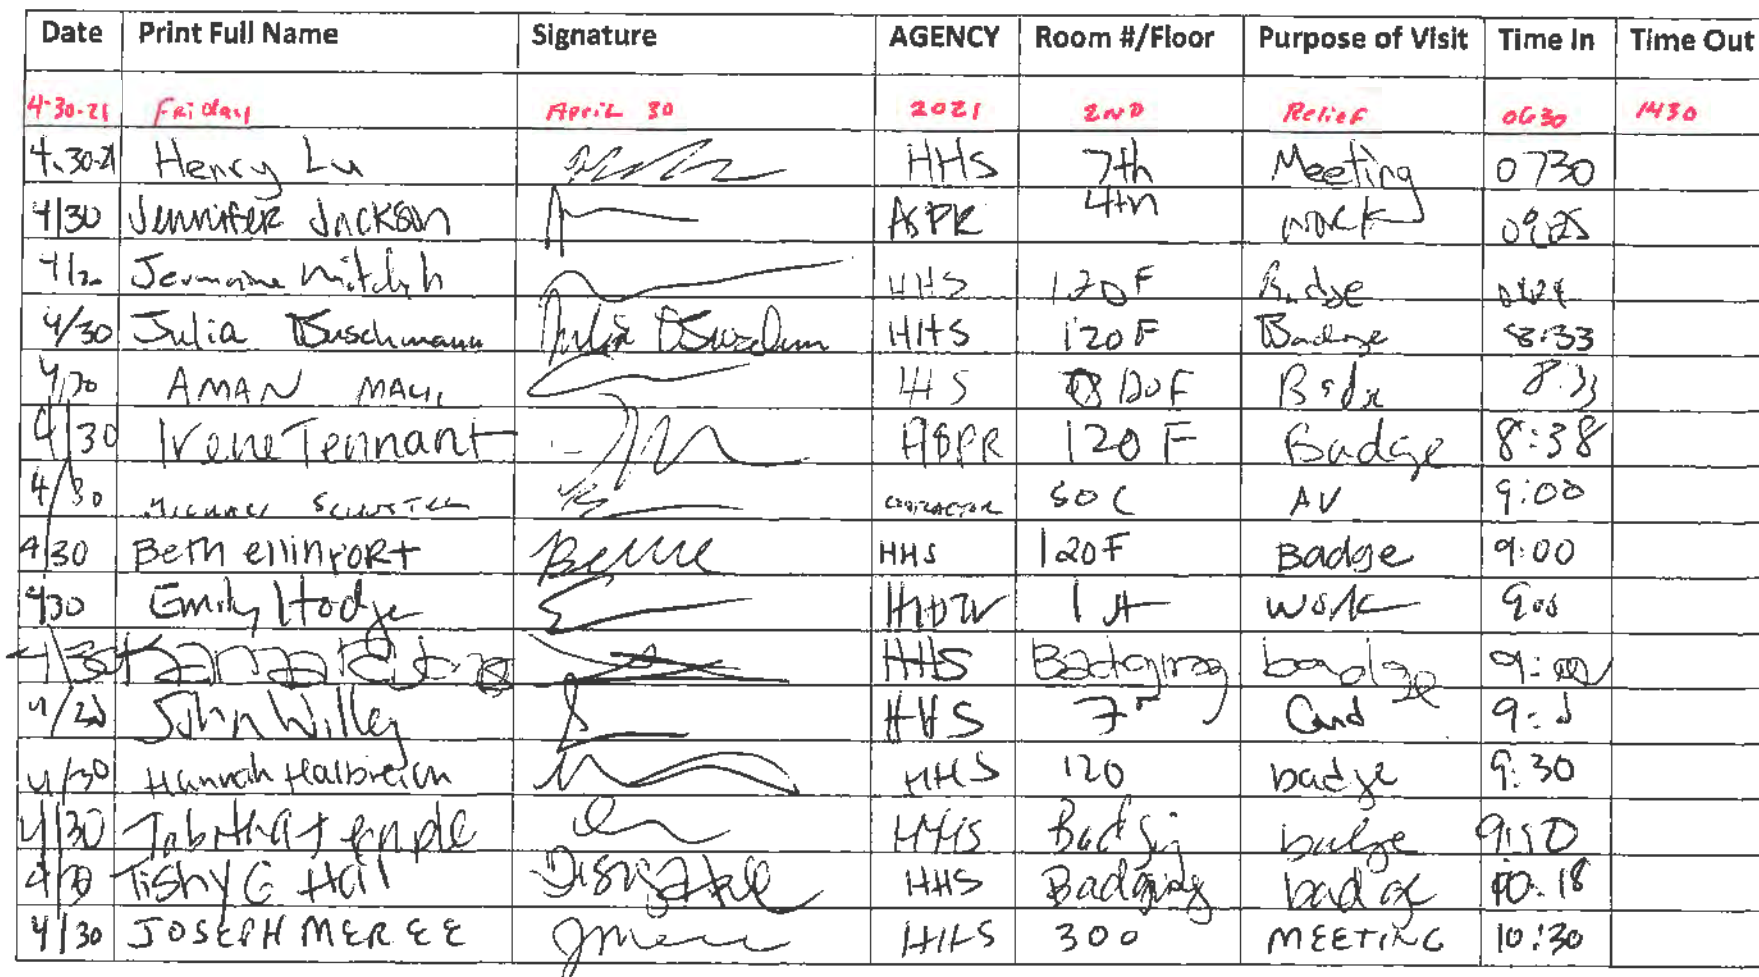 Date Print Full Name Signature AGENCY Room #/Floor Purpose of Visit Time In Time Out
4-30-21 Friday April 30 2021 2ND Relief 0630 1430
4.30-21 Henry Lu HHS 7th Meeting 0730
4/30 Jennifer Jackson ASPR 4th work
HHS 120F Badge
4/30 Julia Buschmann HHS 120F Badge 8:33
4/30 AMAN HHS 8:33
4/30 Irene Tennant ASPR 120F Badge 8:38
4/30 MICHAEL CONTRACTOR AV 9:00
4/30 Beth HHS 120F Badge 9:00
4/30 Emily Hodge work
4/30 HHS Badging badge
John Willey HHS 7th 
4/30 Hannah Halbreich HHS 120 badge 9:30
4/30 Tabitha Temple HHS badge 9:50
4/30 Tishy G Hall Tishy G Hall HHS Badging badge 10:18
4/30 JOSEPH MEREE HHS 300 MEETING 10:30